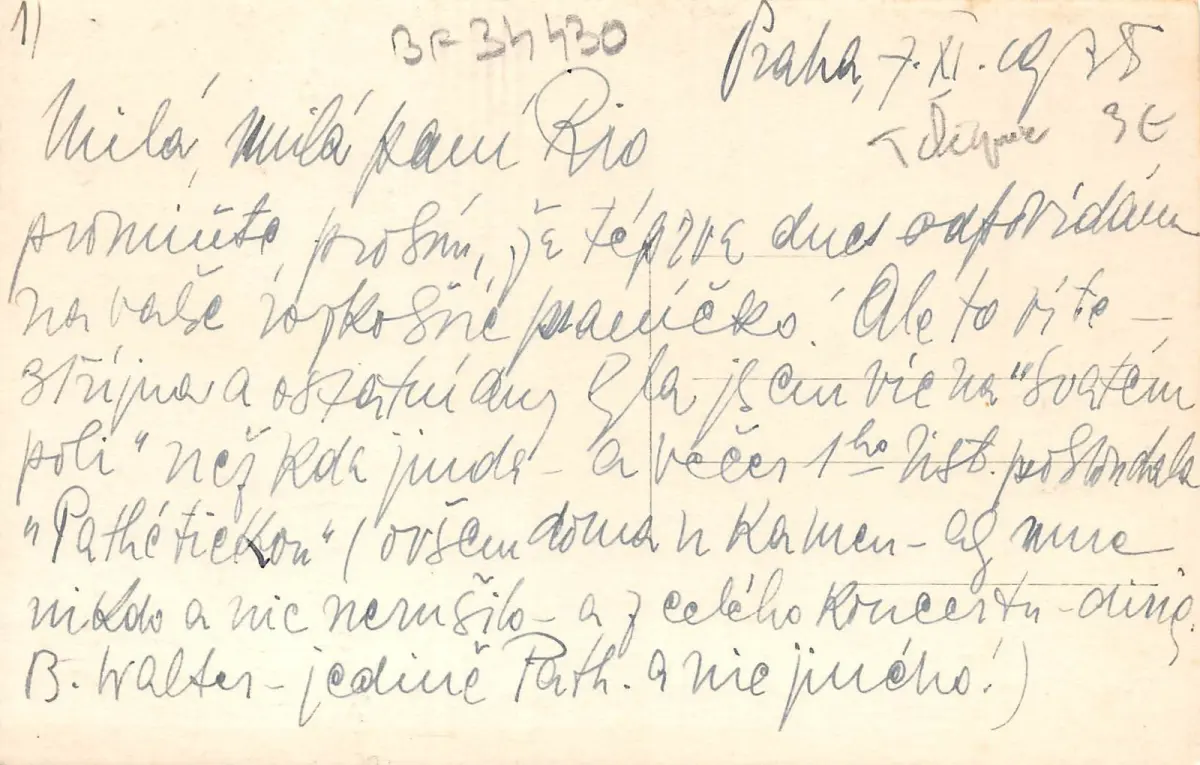 1)
BF 34430
Praha, 7. XI. 1935
3 E
Milá, milá paní Rio
promiňte, prosím, že téprve dnes odpovídám
na vaše rozkošné psaníčko! Ale to víte –
října a ostatní dny byla jsem víc na "svatém
poli" než kde jinde – a večer 1ho list. poslouchala
"Pathétickou" (ovšem doma u kamen – by mne
nikdo a nic nerušilo – a z celého koncertu – dirig.
B. Walter – jedině Path. a nic jiného!)